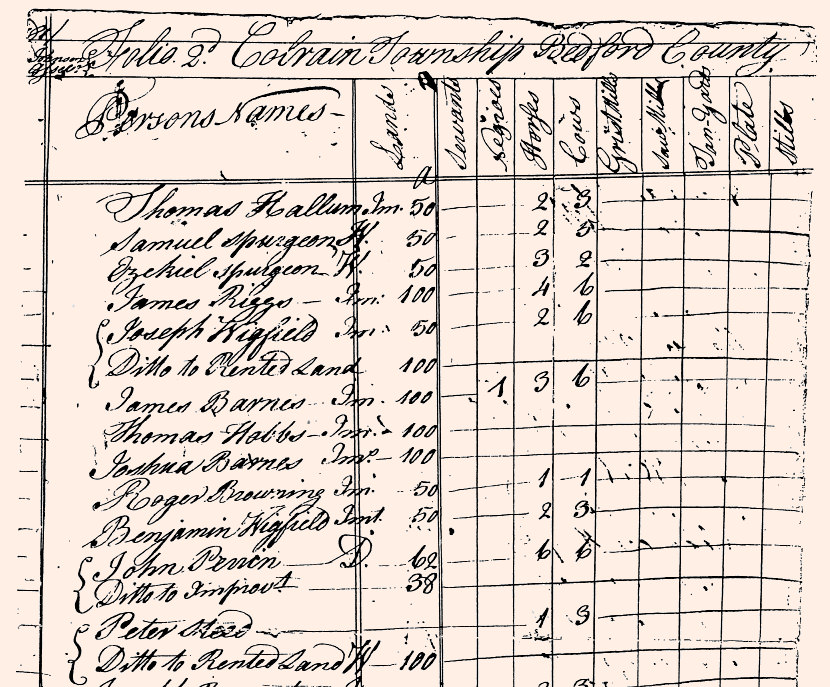 Folio 2d Colrain Township Bedford County
Persons Names - Lands Servants Negroes Horses Cows Grist Mills Saw Mills Tan Yard Plate Stills
a
Thomas Hallum Im. 50 2 3
Samuel Spurgeon W. 50 2 5
Ezekiel Spurgeon W. 50 3 2
James Riggs - Im: 100 4 6
Joseph Wigfield Im: 50 2 6
Ditto to Rented Land 100
James Barnes - Im. 100 1 3 6
Thomas Hobbs - Im: 100
Joshua Barnes Imt. 100
Roger Browning Im. 50 1 1
Benjamin Wigfield Imt. 50 2 3
John Perrin D. 62 6 6
Ditto to Improvt 38
Peter 1 3
Ditto to Rented Land W - 100